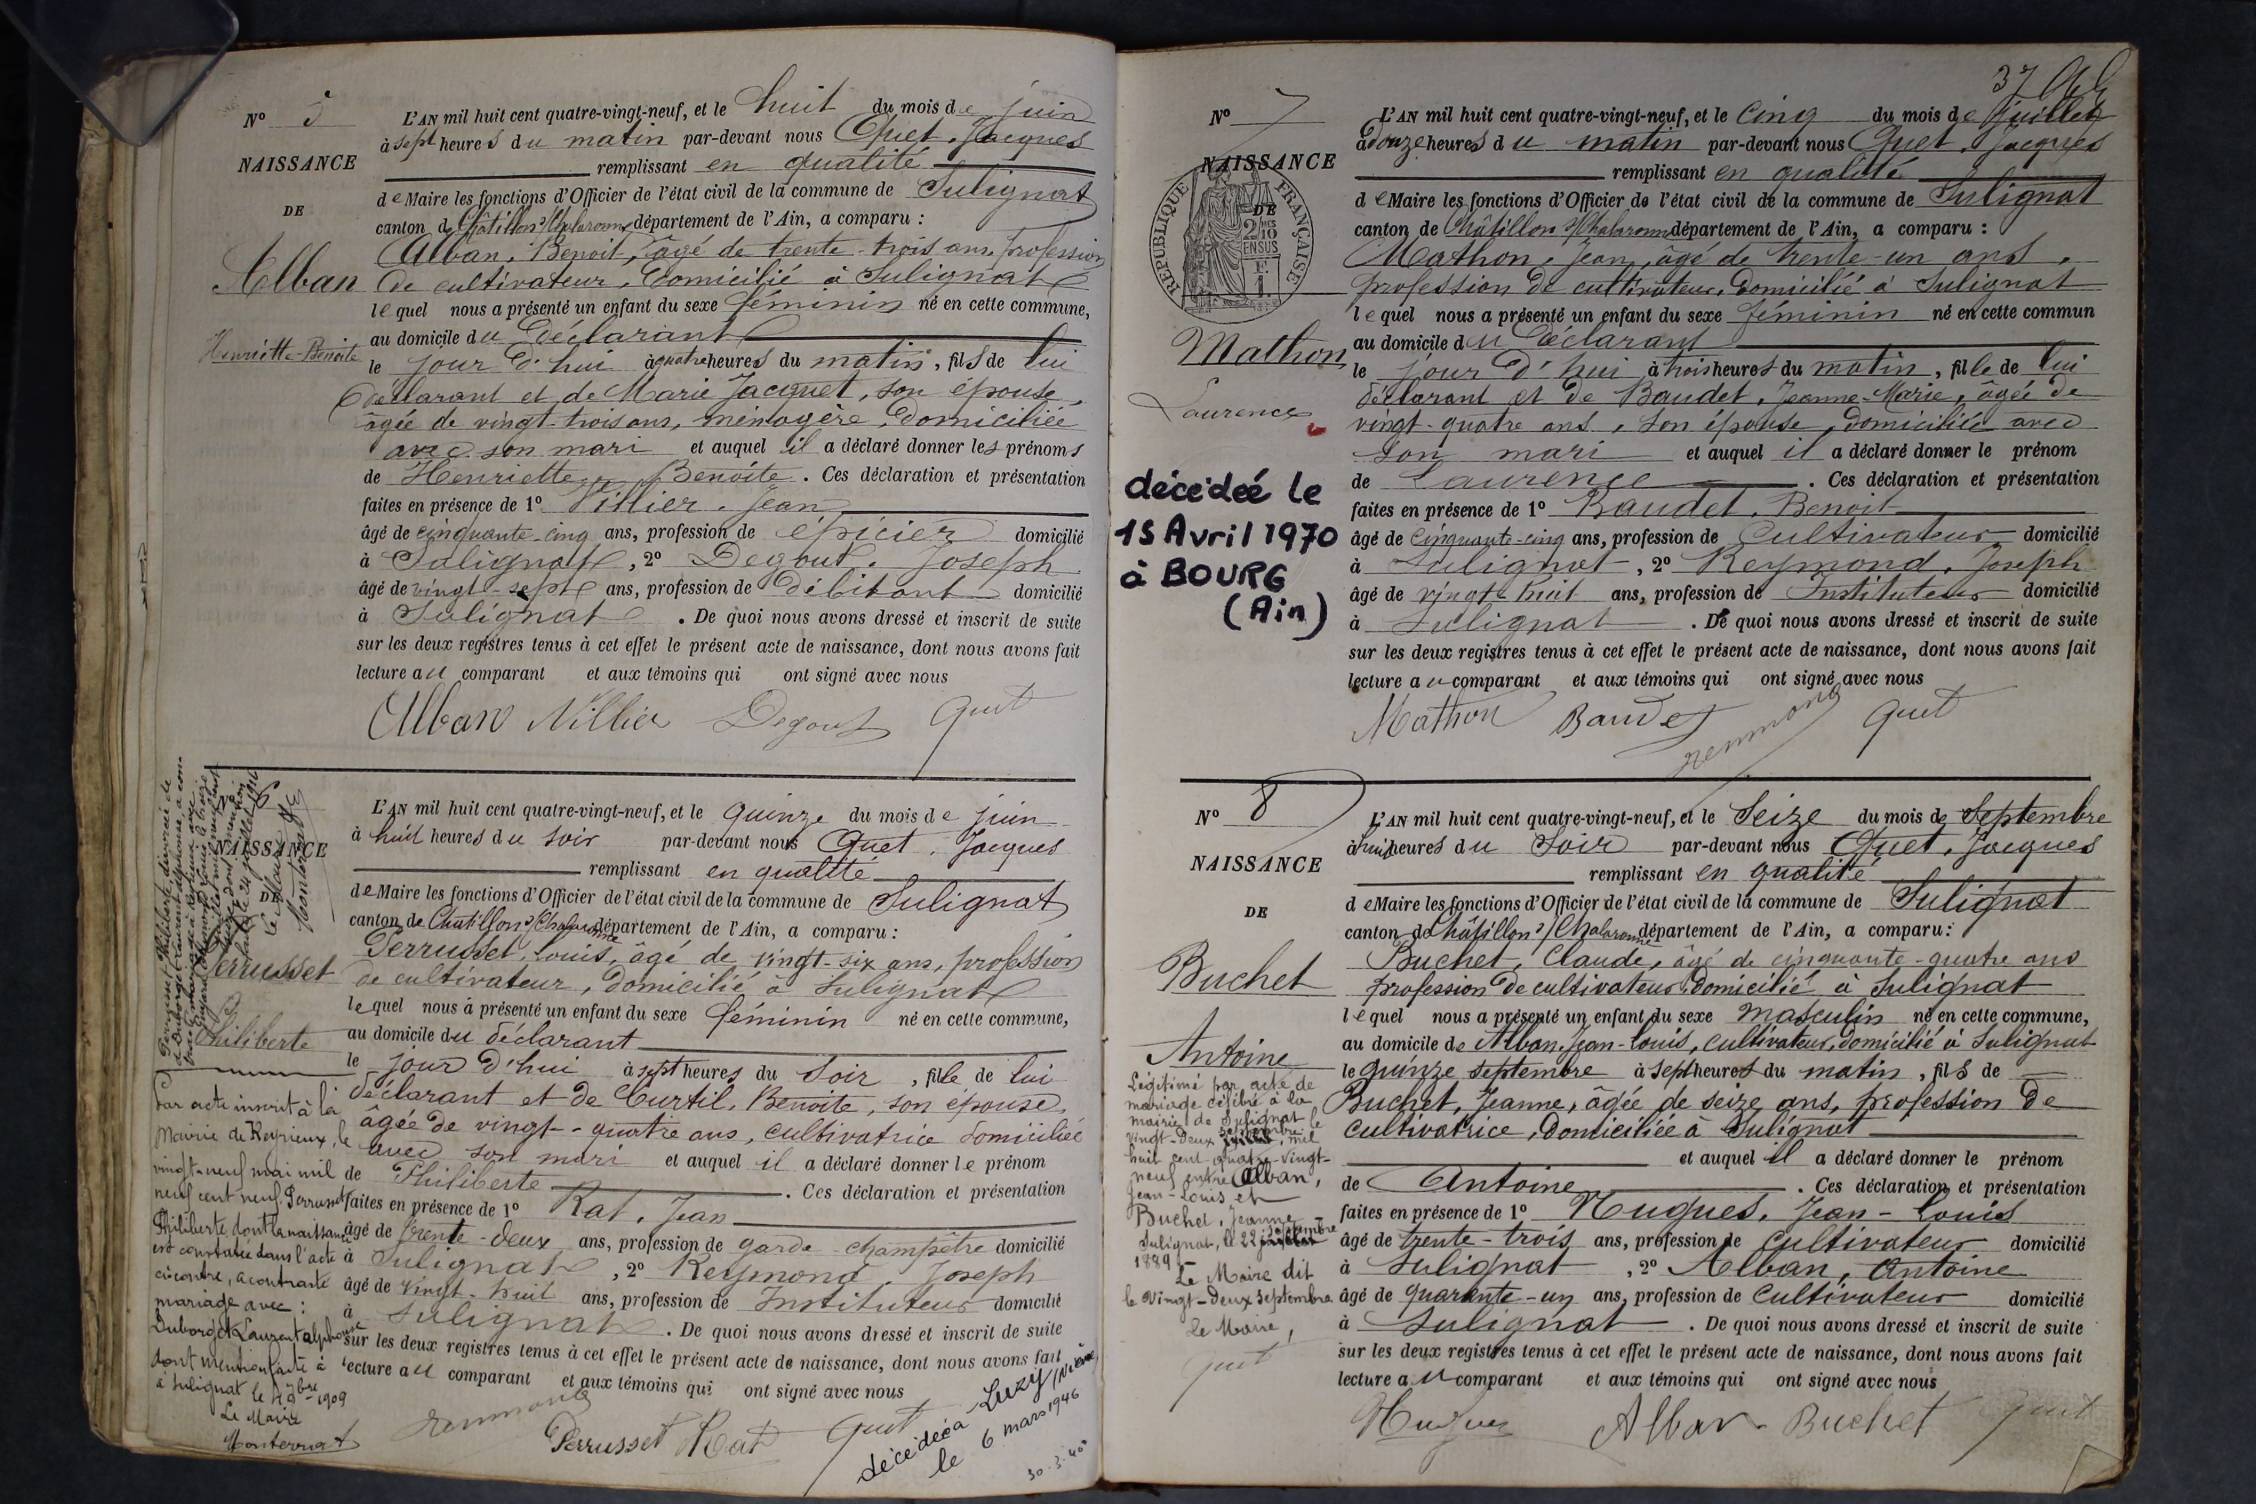 N° 5
NAISSANCE
DE
Alban
Henriette-Benoîte
L'AN mil huit cent quatre-vingt-neuf, et le huit du mois de juin
à sept heures du matin par-devant nous Quet, Jacques
remplissant en qualité
de Maire les fonctions d'Officier de l'état civil de la commune de Sulignat
canton de Châtillon s/Chalaronne département de l'Ain, a comparu :
Alban, Benoit, âgé de trente-trois ans, profession
de cultivateur, domicilié à Sulignat
lequel nous a présenté un enfant du sexe féminin né en cette commune,
au domicile du déclarant
le jour d'hui à quatre heures du matin, fils de lui
déclarant et de Marie Jacquet, son épouse,
âgée de vingt-trois ans, ménagère, domiciliée
avec son mari et auquel il a déclaré donner les prénoms
de Henriette, Benoîte. Ces déclaration et présentation
faites en présence de 1° Villier, Jean
âgé de cinquante-cinq ans, profession de épicier domicilié
à Sulignat, 2° Degout, Joseph
âgé de vingt-sept ans, profession de débitant domicilié
à Sulignat. De quoi nous avons dressé et inscrit de suite
sur les deux registres tenus à cet effet le présent acte de naissance, dont nous avons fait
lecture au comparant et aux témoins qui ont signé avec nous
Alban Villier Degout Quet
N° 6
NAISSANCE
DE
Perrusset
Philiberte
L'AN mil huit cent quatre-vingt-neuf, et le quinze du mois de juin
à huit heures du soir par-devant nous Quet, Jacques
remplissant en qualité
de Maire les fonctions d'Officier de l'état civil de la commune de Sulignat
canton de Châtillon s/Chalaronne département de l'Ain, a comparu :
Perrusset, Louis, âgé de vingt-six ans, profession
de cultivateur, domicilié à Sulignat
lequel nous a présenté un enfant du sexe féminin né en cette commune,
au domicile du déclarant
le jour d'hui à sept heures du soir, fille de lui
déclarant et de Curtil, Benoîte, son épouse,
âgée de vingt-quatre ans, cultivatrice domiciliée
avec son mari et auquel il a déclaré donner le prénom
de Philiberte. Ces déclaration et présentation
faites en présence de 1° Rat, Jean
âgé de trente-deux ans, profession de garde-champêtre domicilié
à Sulignat, 2° Reymond, Joseph
âgé de vingt-huit ans, profession de Instituteur domicilié
à Sulignat. De quoi nous avons dressé et inscrit de suite
sur les deux registres tenus à cet effet le présent acte de naissance, dont nous avons fait
lecture au comparant et aux témoins qui ont signé avec nous
Reymond Perrusset Rat Quet
décédée à Luzy (Nièvre)
le 6 mars 1946
Par acte inscrit à la
mairie de Reyrieux, le
vingt-neuf mai mil
neuf cent neuf, Perrusset
Philiberte dont la naissance
est constatée dans l'acte
ci-contre, a contracté
mariage avec :
Duborget Laurent alphonse
dont mention faite à
à Sulignat le 1909
Le Maire
Monterrat
37
N° 7
NAISSANCE
DE
RÉPUBLIQUE FRANÇAISE
Mathon
Laurence
décédeé le
15 Avril 1970
à BOURG
(Ain)
L'AN mil huit cent quatre-vingt-neuf, et le cinq du mois de juillet
à onze heures du matin par-devant nous Quet, Jacques
remplissant en qualité
de Maire les fonctions d'Officier de l'état civil de la commune de Sulignat
canton de Châtillon s/Chalaronne département de l'Ain, a comparu :
Mathon, Jean, âgé de trente-un ans,
profession de cultivateur, domicilié à Sulignat
lequel nous a présenté un enfant du sexe féminin né en cette commun
au domicile du déclarant
le jour d'hui à trois heures du matin, fille de lui
déclarant et de Baudet, Jeanne-Marie, âgée de
vingt-quatre ans, son épouse, domiciliée avec
son mari et auquel il a déclaré donner le prénom
de Laurence. Ces déclaration et présentation
faites en présence de 1° Baudet, Benoit
âgé de cinquante-cinq ans, profession de Cultivateur domicilié
à Sulignat, 2° Reymond, Joseph
âgé de vingt-huit ans, profession de Instituteur domicilié
à Sulignat. De quoi nous avons dressé et inscrit de suite
sur les deux registres tenus à cet effet le présent acte de naissance, dont nous avons fait
lecture au comparant et aux témoins qui ont signé avec nous
Mathon Baudet Reymond Quet
N° 8
NAISSANCE
DE
Buchet
Antoine
Légitimé par acte de
mariage célébré à la
mairie de Sulignat le
vingt-deux septembre, mil
huit cent quatre-vingt-
neuf entre Alban,
Jean-Louis et
Buchet, Jeanne
Sulignat, le 22 septembre
1889
Le Maire dit
le vingt-deux septembre
Le Maire,
Quet
L'AN mil huit cent quatre-vingt-neuf, et le Seize du mois de Septembre
à huit heures du Soir par-devant nous Quet, Jacques
remplissant en qualité
de Maire les fonctions d'Officier de l'état civil de la commune de Sulignat
canton de Châtillon s/Chalaronne département de l'Ain, a comparu :
Buchet, Claude, âgé de cinquante-quatre ans
profession de cultivateur, domicilié à Sulignat
lequel nous a présenté un enfant du sexe masculin né en cette commune,
au domicile de Alban Jean-Louis, cultivateur, domicilié à Sulignat
le quinze septembre à sept heures du matin, fils de
Buchet, Jeanne, âgée de seize ans, profession de
cultivatrice, domiciliée à Sulignat
et auquel il a déclaré donner le prénom
de Antoine. Ces déclaration et présentation
faites en présence de 1° Nugues, Jean-Louis
âgé de trente-trois ans, profession de Cultivateur domicilié
à Sulignat, 2° Alban, Antoine
âgé de quarante-un ans, profession de Cultivateur domicilié
à Sulignat. De quoi nous avons dressé et inscrit de suite
sur les deux registres tenus à cet effet le présent acte de naissance, dont nous avons fait
lecture au comparant et aux témoins qui ont signé avec nous
Nugues Alban Buchet Quet